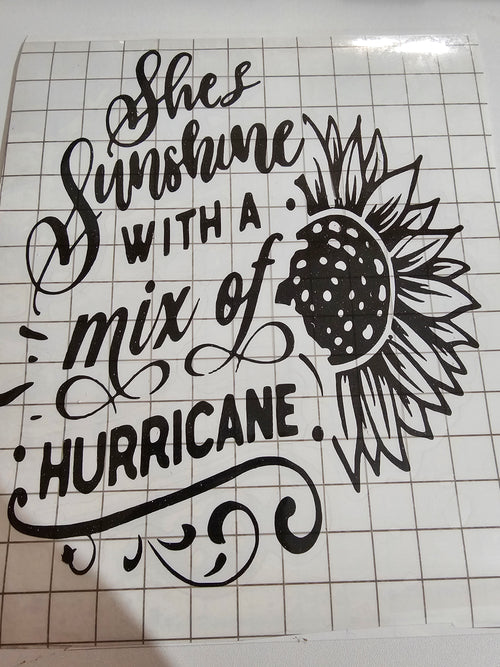 Shes
Sunshine
WITH A
mix of
HURRICANE